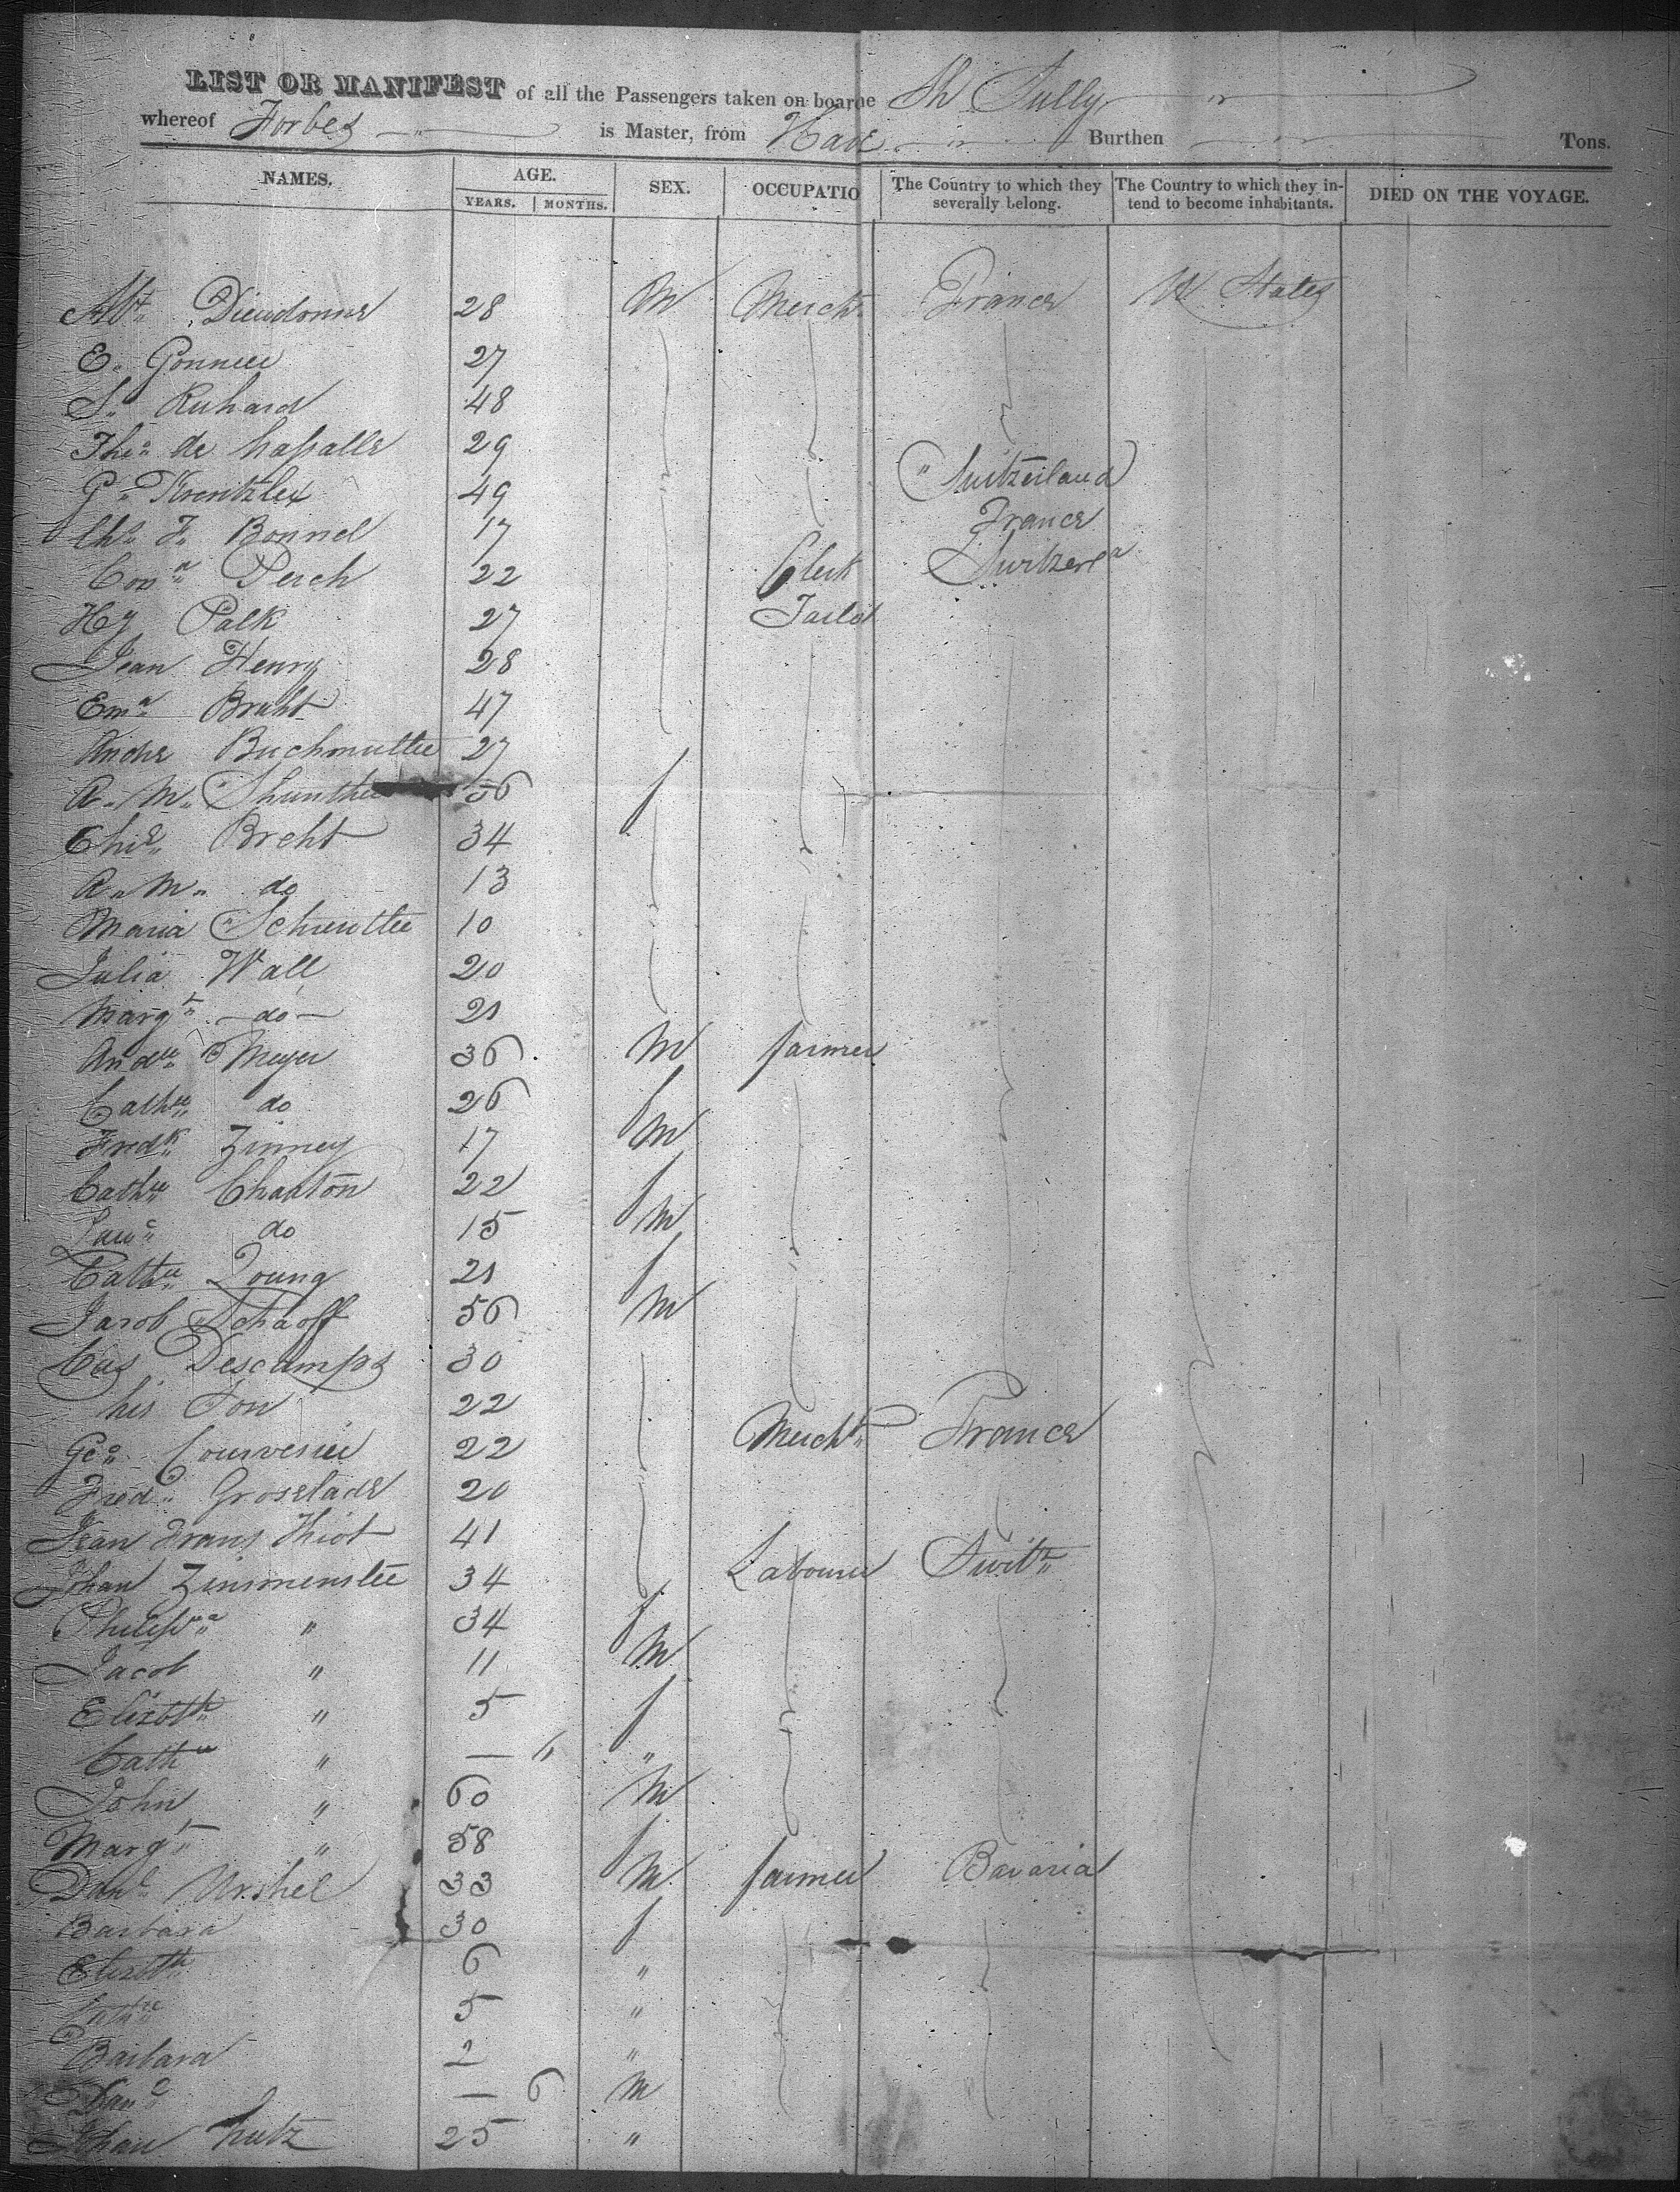 LIST OR MANIFEST of all the Passengers taken on board Sh Sully
whereof Forbes is Master, from Havre Burthen Tons.
NAMES. AGE. SEX. OCCUPATIO The Country to which they severally belong. The Country to which they in-tend to become inhabitants. DIED ON THE VOYAGE.
YEARS. MONTHS.
Dieudonne 28 M Mercht France U States
E. 27
S. Richard 48
de Lassalle 29
G. 49 Switzerland
Chs F. Bonnel 17 France
Perch 22 Clerk Switzerd
Hy Palk 27 Tailor
Jean Henry 28
Braht 47
Andre 27
A. M. 56 f
Breht 34
A. M. do 13
Maria 10
Julia Wall 20
Margt do 21
Meyer 36 M farmer
Cathne do 26 f
Fredk Zinney 17 M
Cathne Charton 22 f
do 15 M
Cathne Young 21 f
Jacob Schaoff 56 M
Descamps 30
his Son 22
Geo. 22 Mercht France
Fred. 20
Jean Frans Thiot 41
Johan 34 Labourer Switz
" 34 f
Jacob " 11 M
Elizbth " 5 f
Cathne " — "
John " 60 M
Margt " 58 f
Danl Urshel 33 M farmer Bavaria
Barbara 30 f
Elizbth 6 "
5 "
Barbara 2 "
Danl — 6 M
Johan Lutz 25 "